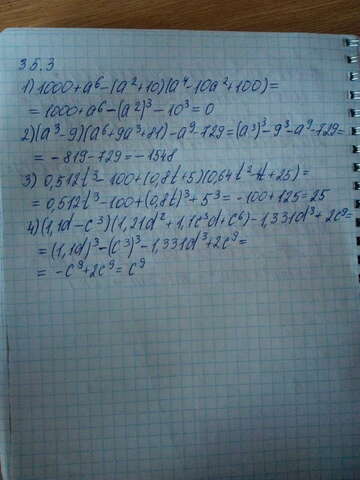 35.3
1) 1000+a⁶-(a²+10)(a⁴-10a²+100)=
=1000+a⁶-(a²)³-10³=0
2)(a³-9)(a⁶+9a³+81)-a⁹-729=(a³)³-9³-a⁹-729=
=-819-729=-1548
3) 0,512t³-100+(0,8t+5)(0,64t²-4t+25)=
=0,512t³-100+(0,8t)³+5³=-100+125=25
4)(1,1d-c³)(1,21d²+1,1c³d+c⁶)-1,331d³+2c⁹=
=(1,1d)³-(c³)³-1,331d³+2c⁹=
=-c⁹+2c⁹=c⁹